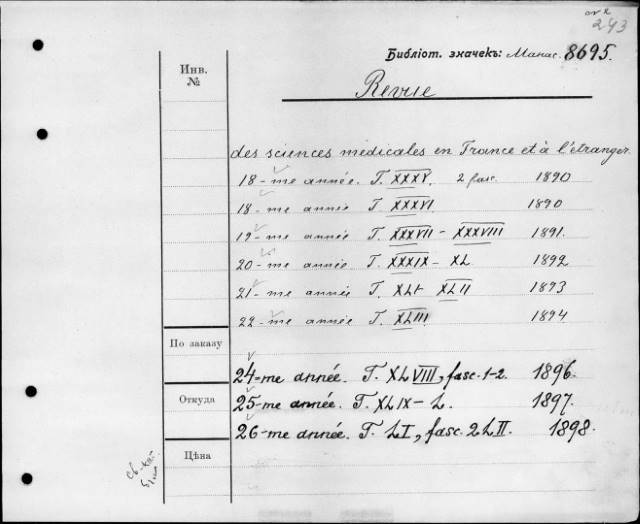 243
Библіот. значекъ: Манас. 8695.
Инв. №
Revue
des sciences médicales en France et à l'étranger.
18-me année. T. XXXV. 2 fasc. 1890
18-me année T. XXXVI. 1890
19-me année T. XXXVII - XXXVIII 1891.
20-me année T. XXXIX - XL 1892
21-me année T. XLI XLII 1893
22-me année T. XLIII 1894
По заказу
24-me année. T. XLVIII, fasc. 1-2. 1896.
Откуда
25-me année. T. XLIX - L. 1897.
26-me année. T. LI, fasc. 2 LII. 1898.
Цѣна